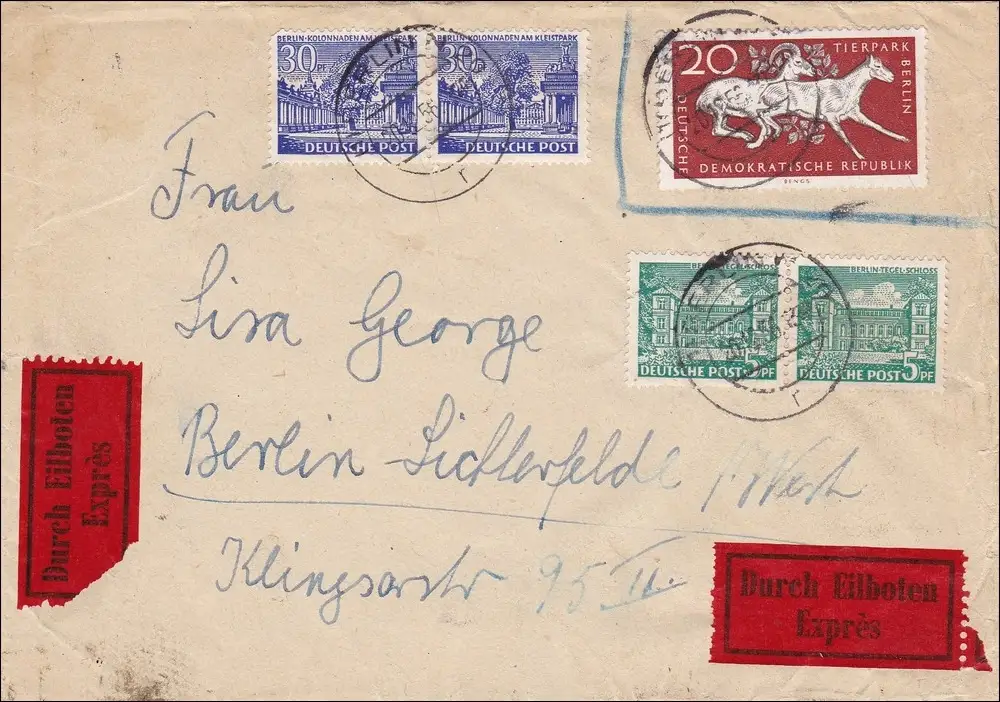 BERLIN-KOLONNADEN AM KLEISTPARK
30 PF
DEUTSCHE POST
BERLIN-KOLONNADEN AM KLEISTPARK
30 PF
DEUTSCHE POST
BERLIN
r
20
TIERPARK
BERLIN
DEUTSCHE
DEMOKRATISCHE REPUBLIK
BENGS
BERLIN-TEGEL-SCHLOSS
DEUTSCHE POST 5 PF
BERLIN-TEGEL-SCHLOSS
DEUTSCHE POST 5 PF
r
Frau
Lisa George
Berlin-Lichterfelde / West
Klingsorstr 95 II.
Durch Eilboten
Exprès
Durch Eilboten
Exprès